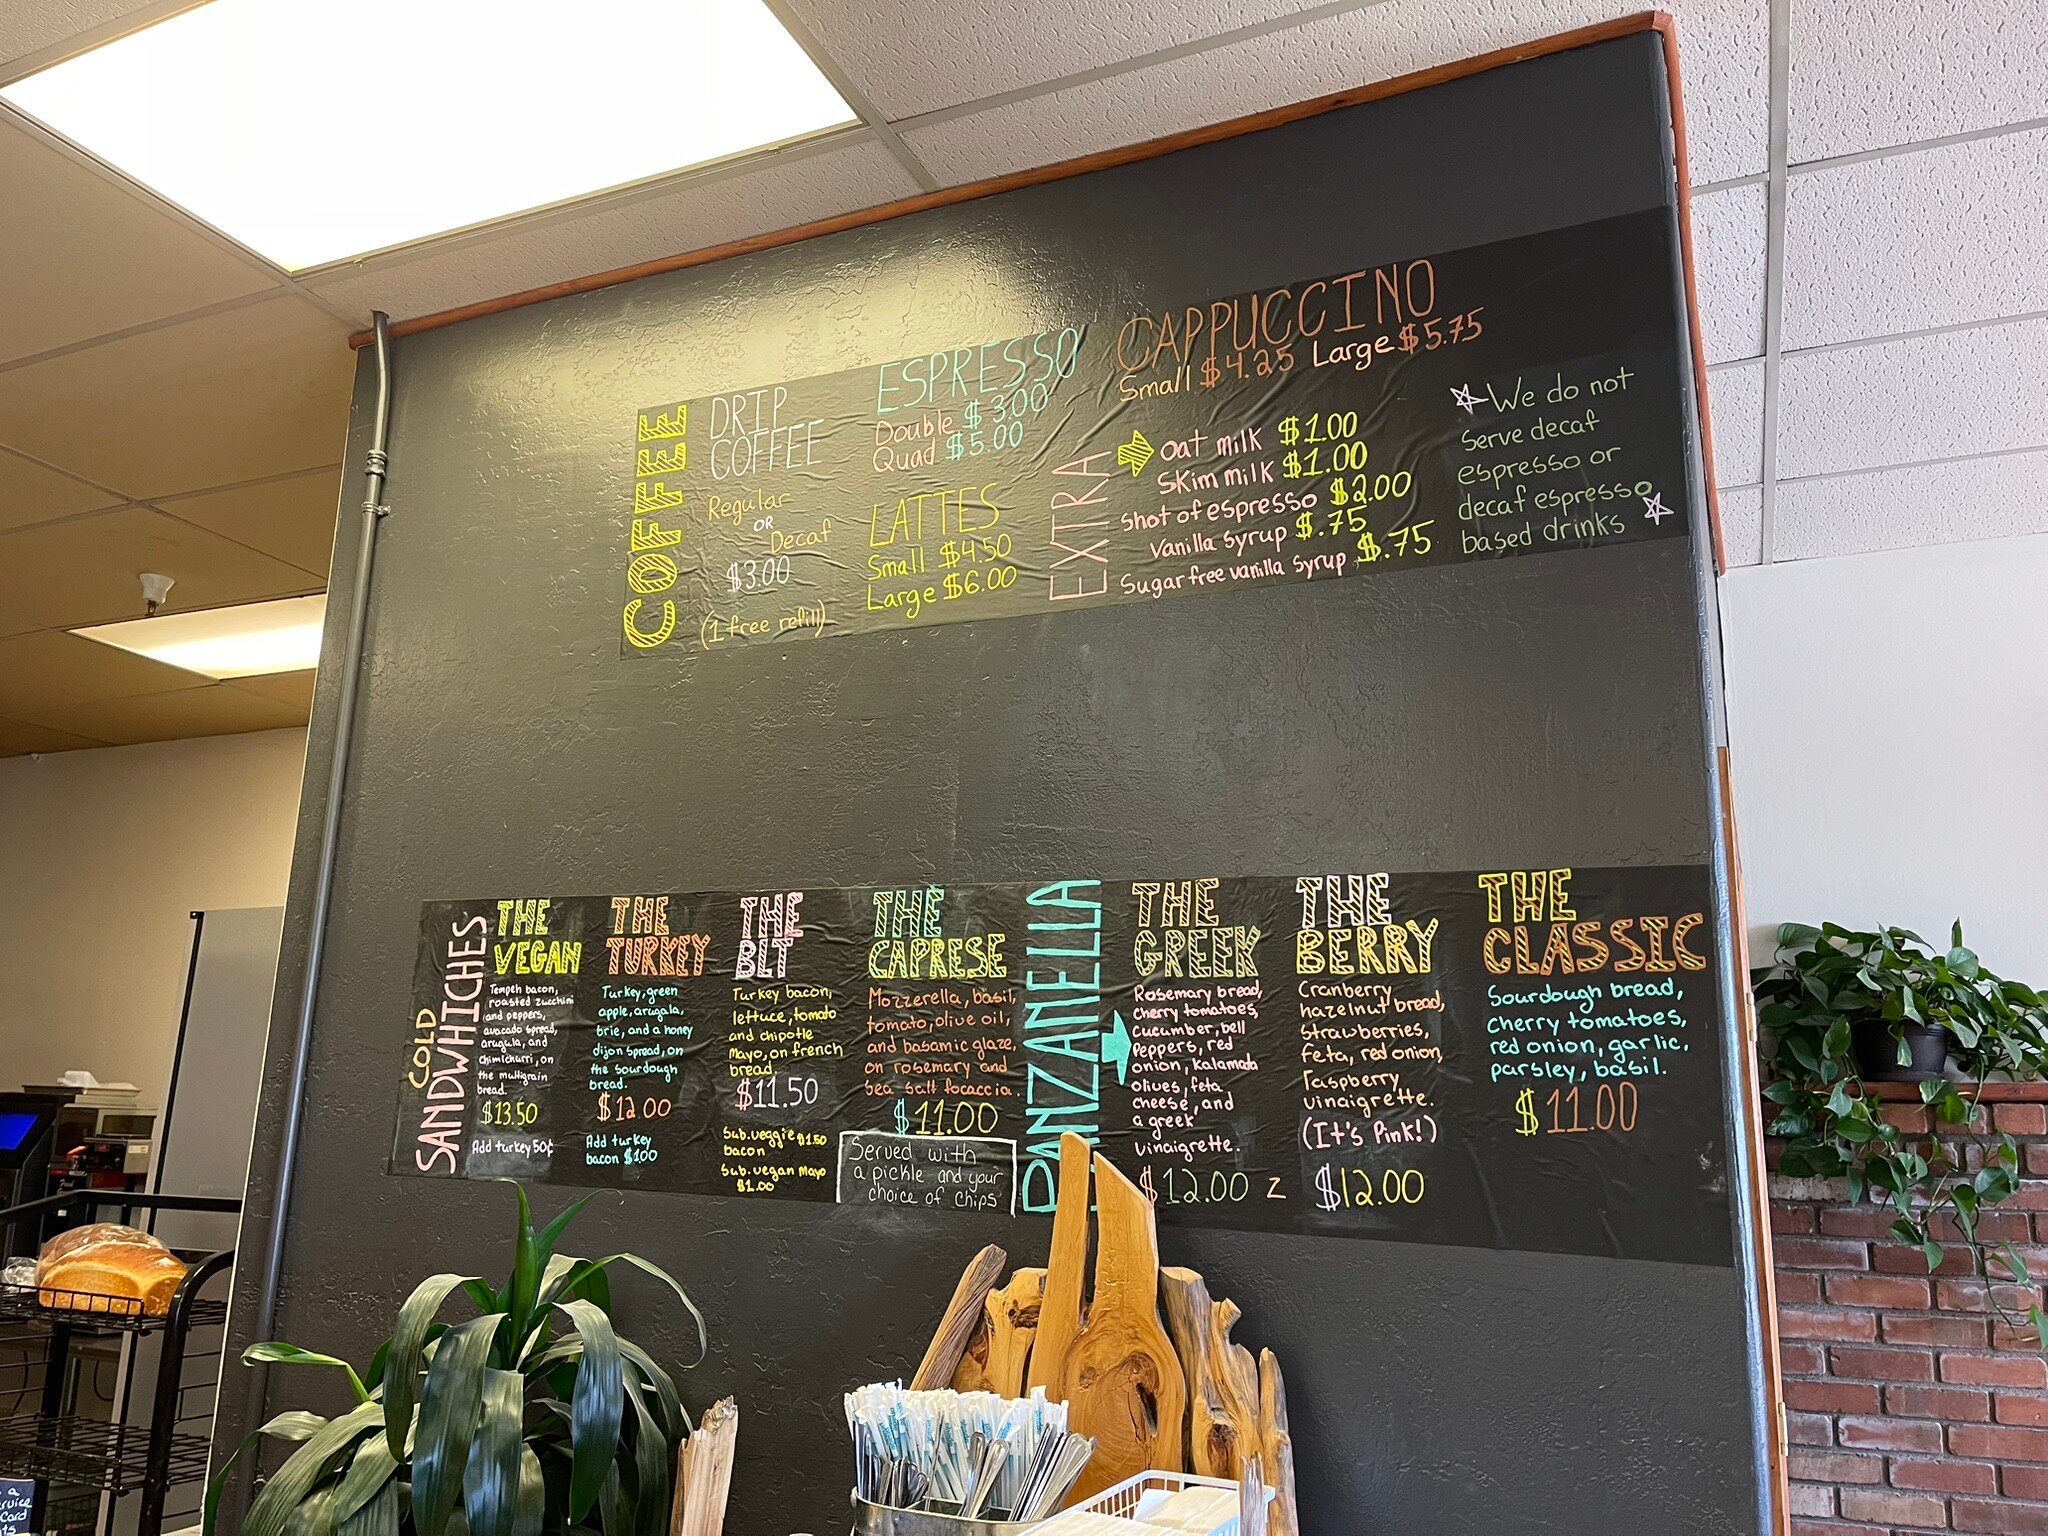 COFFEE
DRIP
COFFEE
Regular
OR
Decaf
$3.00
(1 free refill)
ESPRESSO
Double $3.00
Quad $5.00
LATTES
Small $4.50
Large $6.00
CAPPUCCINO
Small $4.25 Large $5.75
EXTRA
oat milk $1.00
Skim milk $1.00
Shot of espresso $2.00
Vanilla syrup $.75
Sugar free vanilla syrup $.75
We do not
serve decaf
espresso or
decaf espresso
based drinks
COLD
SANDWHICHES
THE
VEGAN
Tempeh bacon,
roasted zucchini
and peppers,
avocado spread,
arugula, and
chimichurri, on
the multigrain
bread.
$13.50
Add turkey 50¢
THE
TURKEY
Turkey, green
apple, arugala,
brie, and a honey
dijon spread, on
the sourdough
bread.
$12.00
Add turkey
bacon $1.00
THE
BLT
Turkey bacon,
lettuce, tomato
and chipotle
mayo, on french
bread.
$11.50
Sub. veggie $1.50
bacon
Sub. vegan mayo
$1.00
THE
CAPRESE
Mozzerella, basil,
tomato, olive oil,
and basamic glaze,
on rosemary and
sea salt focaccia.
$11.00
Served with
a pickle and your
choice of chips
PANZANELLA
THE
GREEK
Rosemary bread,
cherry tomatoes,
cucumber, bell
peppers, red
onion, kalamada
olives, feta
cheese, and
a greek
vinaigrette.
$12.00
THE
BERRY
Cranberry
hazelnut bread,
strawberries,
feta, red onion,
raspberry
vinaigrette.
(It's Pink!)
$12.00
THE
CLASSIC
Sourdough bread,
cherry tomatoes,
red onion, garlic,
parsley, basil.
$11.00